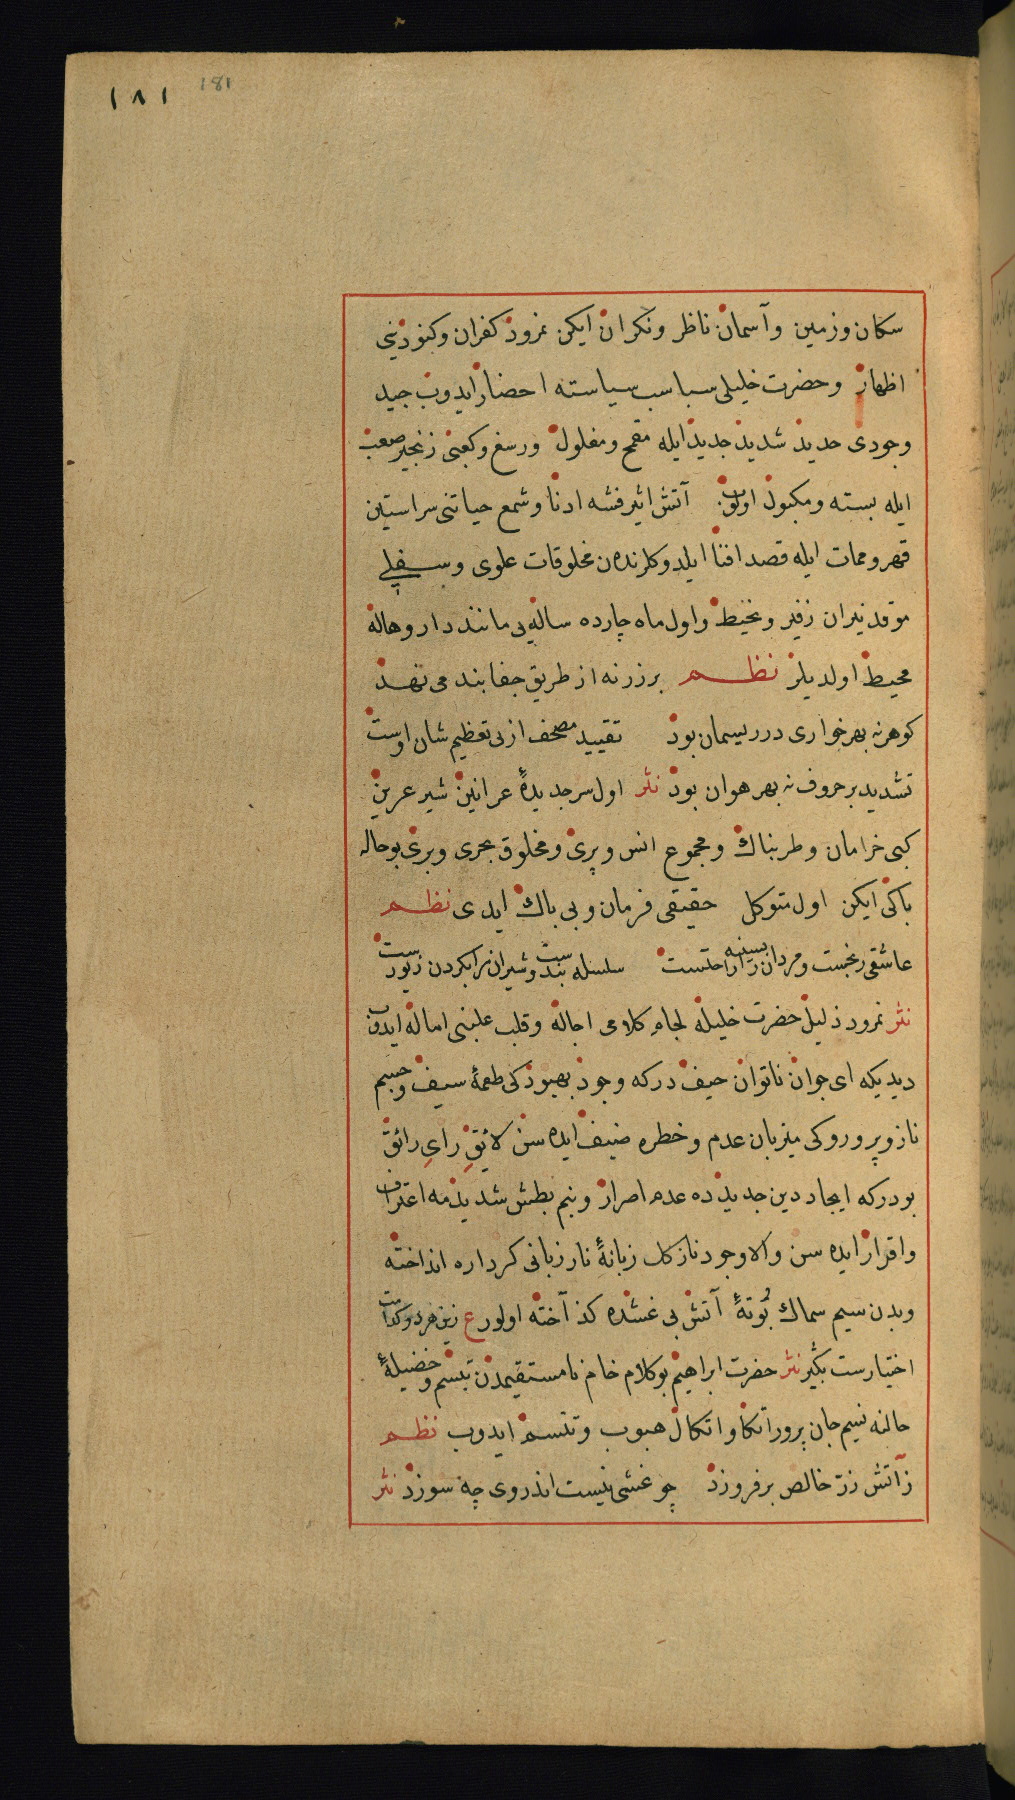 ١٨١ 181
سكان وزمين وآسمان ناظر ونكران ايكن نمرود كفران وكنودينى
اظهار وحضرت خليلى سباسب سياسته احضار ايدوب جيد
وجودى حديد شديد جديد ايله مقمح ومغلول ورسغ وكعبنى زنجير صعب
ايله بسته ومكبول اولوب آتش اثير فشه ادنا وشمع حياتنى سراستين
قهر وممات ايله قصد افنا ايلدوكلرنده ن مخلوقات علوى وسفلى
موقد نيران زفير وغيظ واول ماه چارده ساله‌يى مانند دار وهاله
محيط اولديلر نظم بر زر نه از طريق جفا بند مى نهد
كوهر نه بهر خوارى در ريسمان بود تقييد مصحف از پى تعظيم شان اوست
تشديد بر حروف نه بهر هوان بود نثر اول سر جديدهٔ عرانين شير عرين
كبى خرامان وطربناك ومجموع انس وپرى ومخلوق بحرى وبرى بو حاله
باكى ايكن اول متوكل حقيقى فرمان وبى باك ايدى نظم
عاشقى رنجست ومردان را بسينه راحتست سلسله بندست وشيران را بكردن زيورست
نثر نمرود ذليل حضرت خليله لجام كلامى اجاله وقلب علبنى اماله ايدوب
ديديكه اى جوان ناتوان حيف دركه وجود بهبودكى طعمهٔ سيف وجسم
ناز وپروروكى ميزبان عدم وخطره ضيف ايده سن لايق راى رائق
بودركه ايجاد دين جديدده عدم اصرار وبنم بطش شديدمه اعتراف
واقرار ايده سن والا وجود نازكك زبانهٔ نار زبانى كرداره انداخته
وبدن سيم سماك بُوتهٔ آتش بى غشده كداخته اولور ع زين هر دو كدامت
اختيارست بكير نثر حضرت ابراهيم بو كلام خام نامستقيمدن تبسم وخضيلهٔ
حالنه نسيم جان پرور اتكا واتكال هبوب وتنسم ايدوب نظم
زآتش زر خالص برفروزد چو غشى نيست اندروى چه سوزد نثر